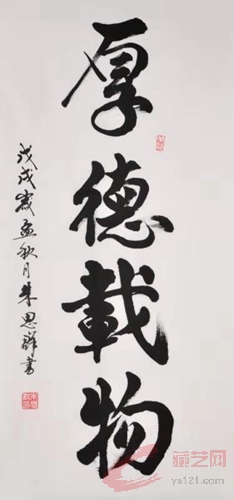 厚德載物
戊戌歲孟秋月朱思群書
藏艺网
ys121.com